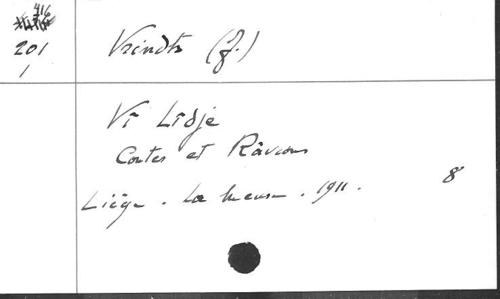 416
201
1
Vrindts (J.)
Vî Lîdje
Contes et Râvions
Liége. La Meuse. 1911. 8°